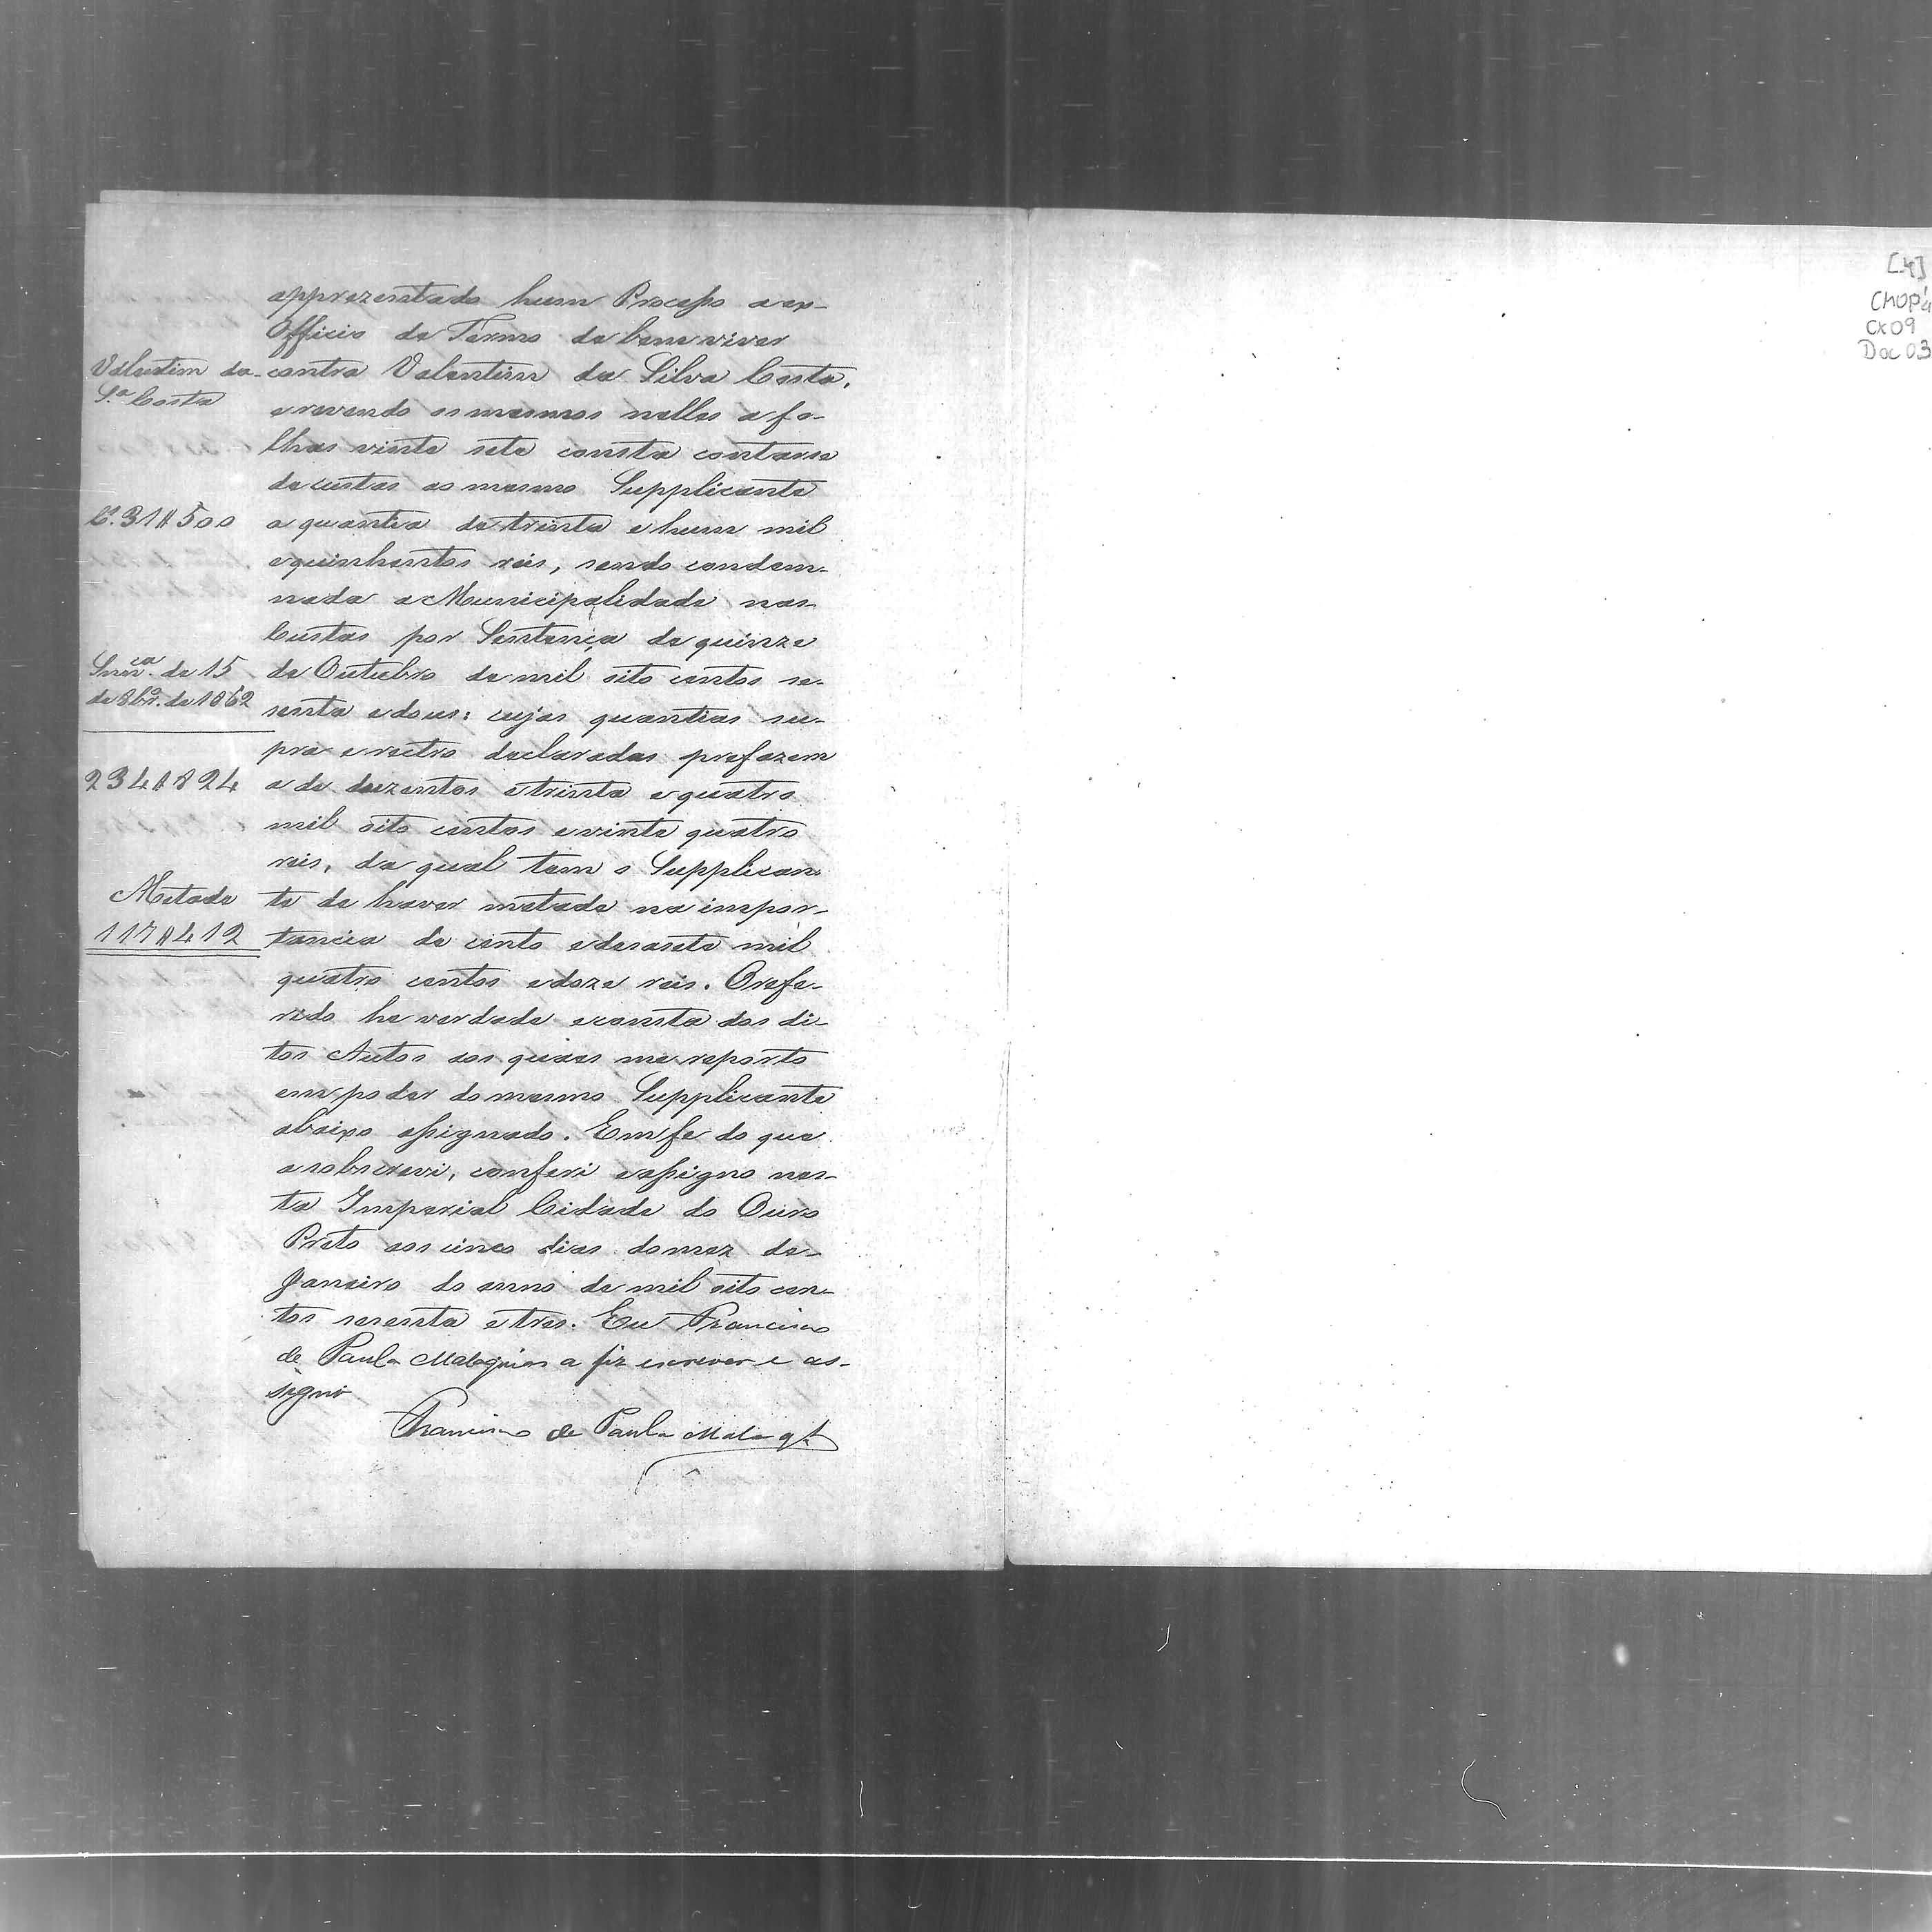 apprezentado hum Processo a ex-
Officio de Termo de bem viver
Valentim da
S.ª Costa
contra Valentim da Silva Costa,
e revendo os mesmos nelles a fo-
lhas vinte sete consta contarse
de custas ao mesmo Supplicante
C.ª 31$500
a quantia de trinta e hum mil
e quinhentos reis, sendo condem-
nada a Municipalidade nas
Custas por Sentença de quinze
Snn.ça de 15
de 8br.º de 1862
de Outubro de mil oito centos se-
senta e dous: cujas quantias su-
pra e rectro declaradas prefazem
234$824
a de duzentos e trinta e quatro
mil oito centos e vinte quatro
reis, da qual tem o Supplican-
Metade
te de haver metade na impor-
117$412
tancia de cento e desasete mil
quatro centos e doze reis. O refe-
rido he verdade e consta dos di-
tos Autos aos quaes me reporto
em poder do mesmo Supplicante
abaixo assignado. Em fe do que
a sobscrevi, conferi e assigno nes-
ta Imperial Cidade do Ouro
Preto aos cinco dias do mez de
Janeiro do anno de mil oito cen-
tos sesenta e tres. Eu Francisco
de Paula Malaquias a fiz escrever e as-
signo
Francisco de Paula Malaq.s
[4]
CMOP
CX09
Doc 03